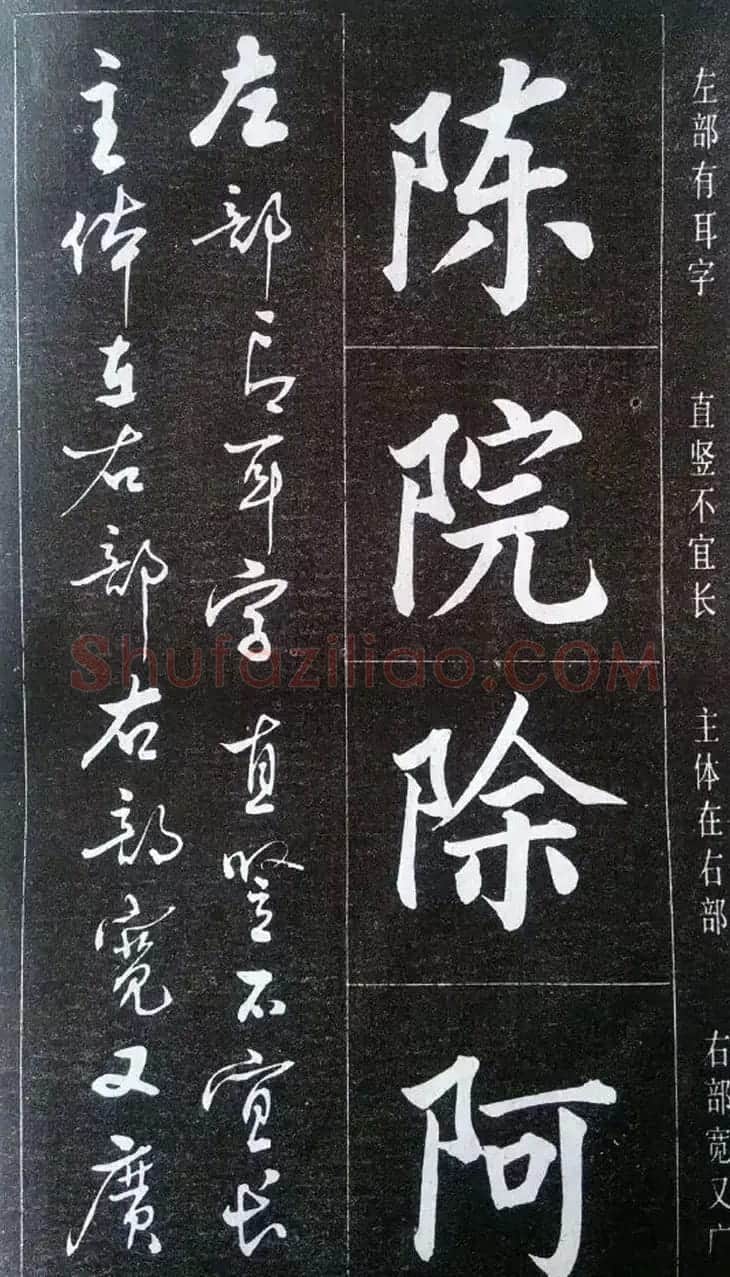 左部有耳字
直竖不宜长
主体在右部
右部宽又广
陈
院
除
阿
左部有耳字直竖不宜长
主体在右部右部寬又廣
Shufaziliao.COM